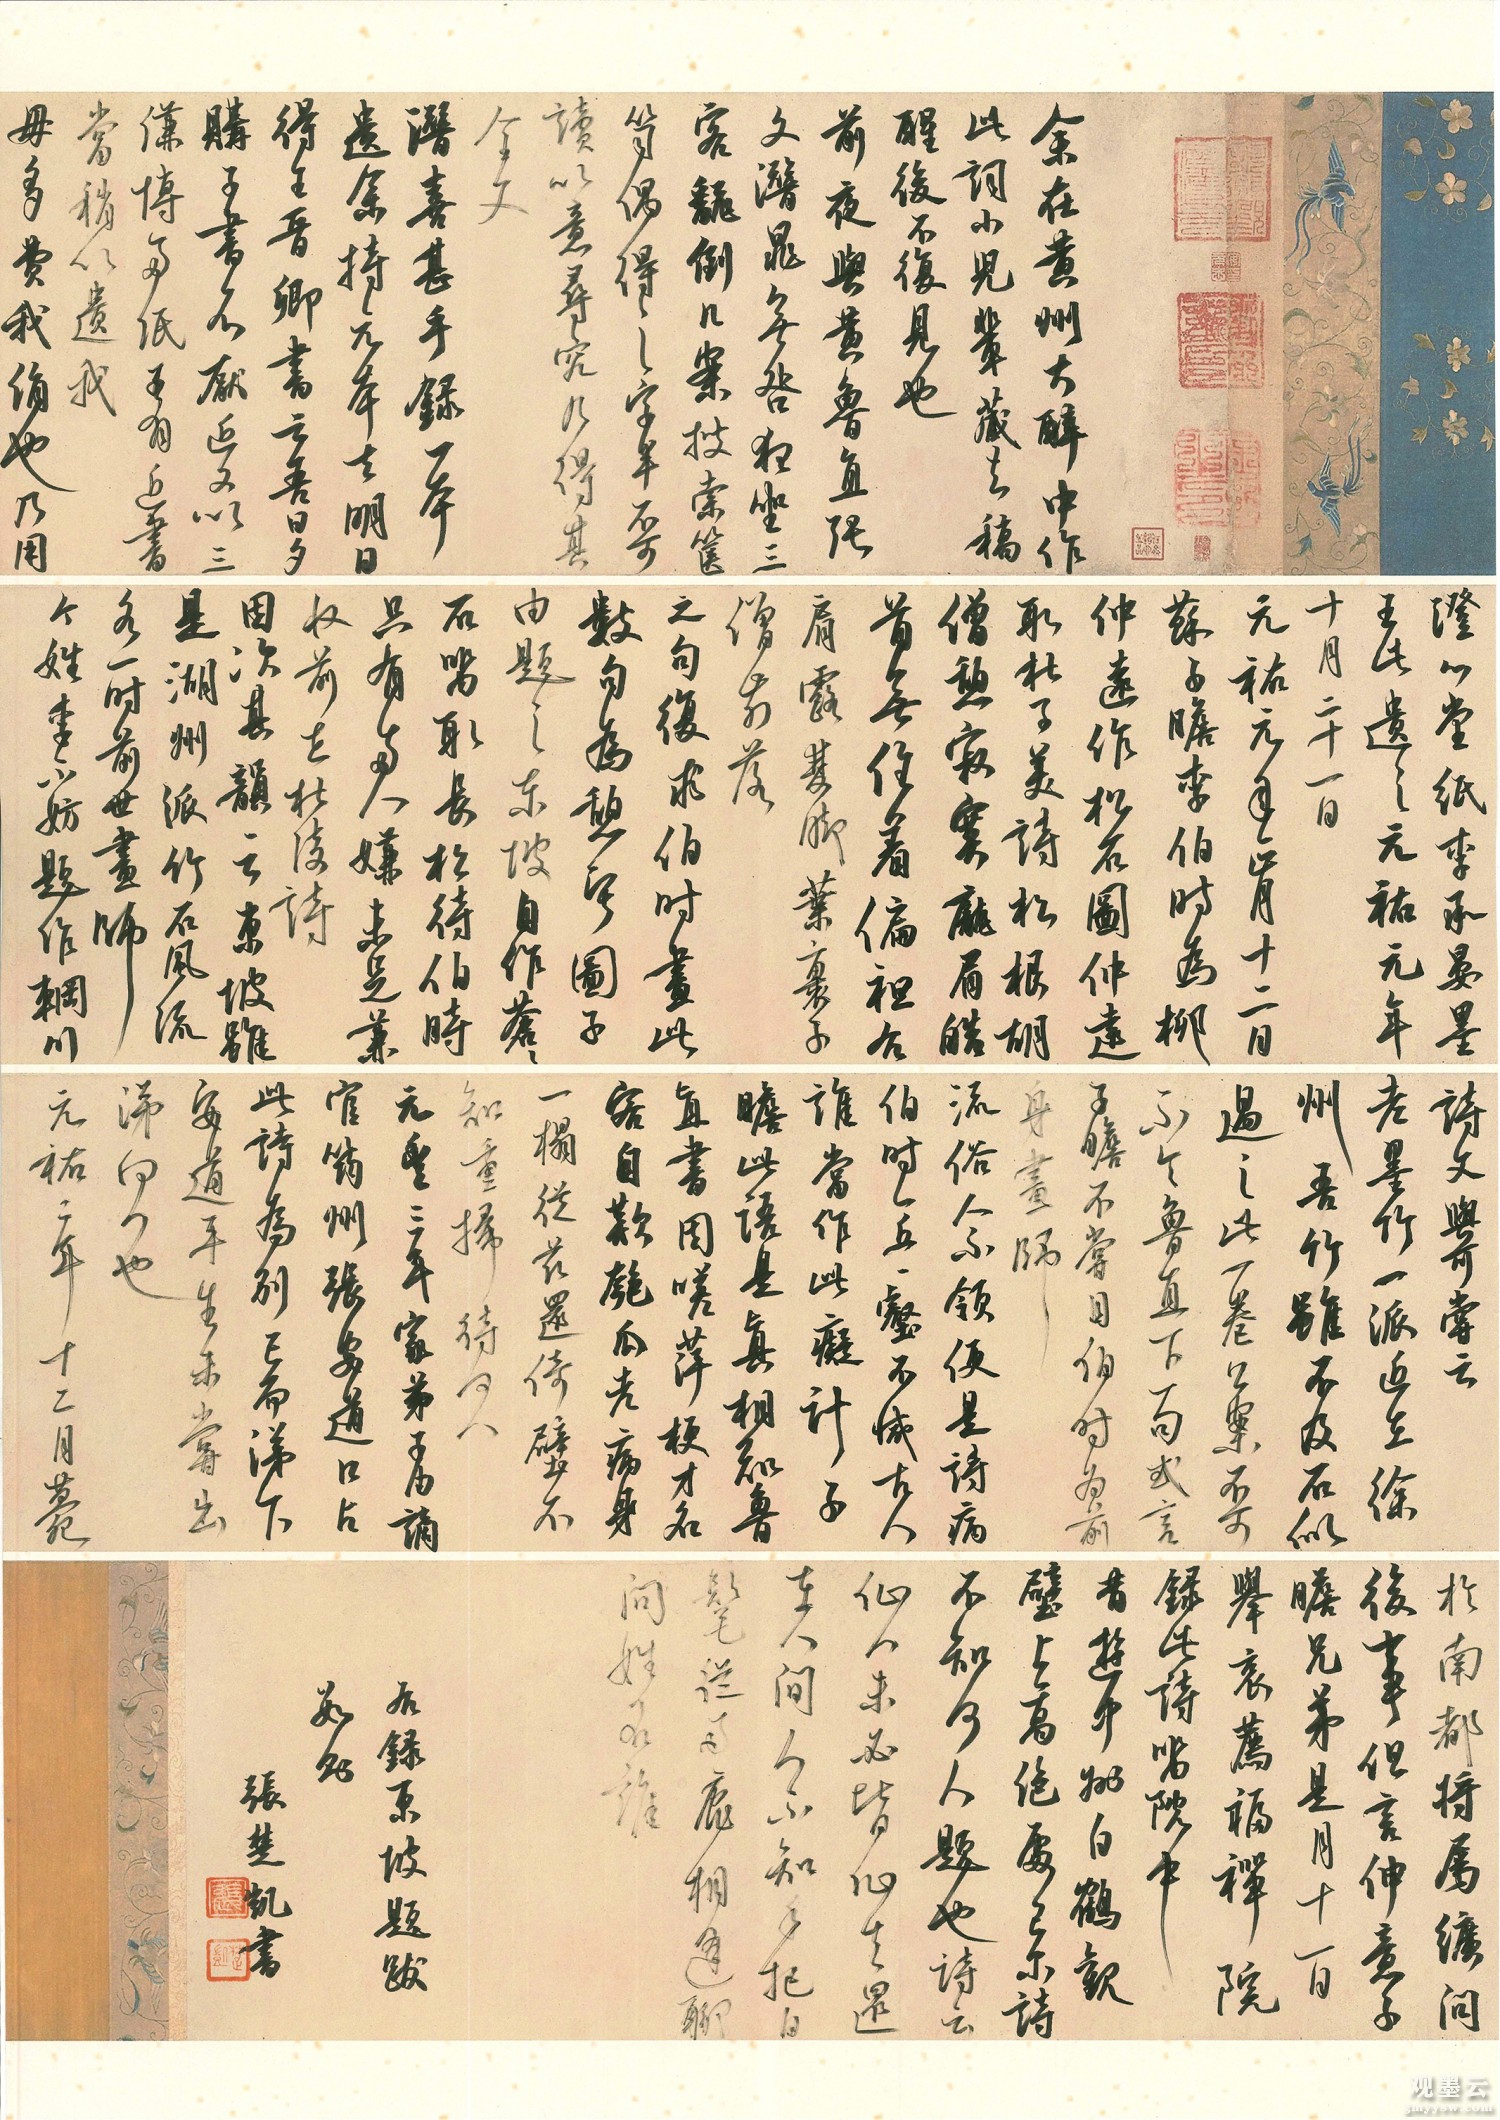 余在黄州大醉中作
此詞小兒輩藏去稿
醒後不復見也
前夜與黄魯直張
文潛晁無咎夜坐三
客飜倒几案搜索篋
笥偶得之字半不可
讀以意尋究乃得其
全文
潛喜甚手録一本
遺余持元本去明日
得王晋卿書云吾日夕
購子書不厭近又以三
縑博兩紙子有近書
當稍以遺我
毋多費我絹也乃用
澄心堂紙李承晏墨
書此遺之元祐元年
十月二十一日
元祐元年正月十二日
蘇子瞻李伯時為柳
仲遠作松石圖仲遠
取杜子美詩松根胡
僧憩寂寞龐眉皓
首無住著偏袒右
肩露雙脚葉裏松子
僧前落
之句復求伯時畫此
數句為憩寂圖子
由題之東坡自作蒼蒼
石留取長松待伯時
只有兩人嫌未足兼
收前世杜陵詩
因次其韻云東坡雖
是湖州派竹石風流
各一時前世畫師
今姓李不妨題作輞川
詩文與可嘗云
老墨竹一派近在徐
州吾竹雖不及石似
過之此一卷公案不可
不令魯直下一句或言
子瞻不當目伯時為前
身畫師
流俗人不領便是詩病
伯時一丘一壑不減古人
誰當作此癡計子
瞻此語是真相知魯
直書因嗟萍梗才名
客自歎匏瓜老病身
一榻從兹還倚壁不
知重掃待何人
元豐三年家弟子由謫
官筠州張安道口占
此詩為别已而涕下
安道平生未嘗出
涕向人也
元祐六年十二月薨
於南都將屬纊問
後事但言仲意子
瞻兄弟是月十一日
舉哀薦福禪院
録此詩留院中
昔遊忠州白鶴觀
壁上高絶處有小詩
不知何人題也詩云
仙人未必皆仙去還
在人間人不知手把白
髦從兩鹿相逢聊
問姓名誰
右録東坡題跋
數則
張楚凯書
观墨云
gmyyow.com